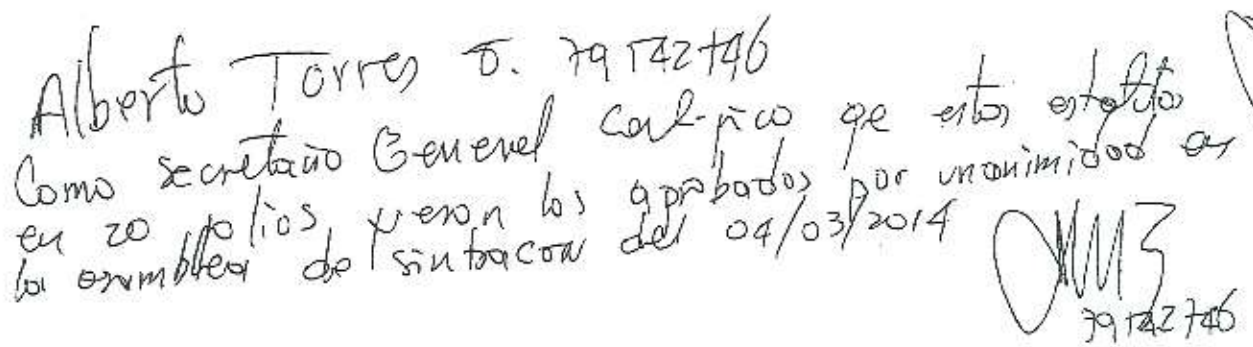 Alberto Torres O. 79142746
Como secretario General Certifico qe estos estatutos
en 20 folios fueron los aprobados por unanimidad en
la asamblea de sintracon del 04/03/2014
79142746